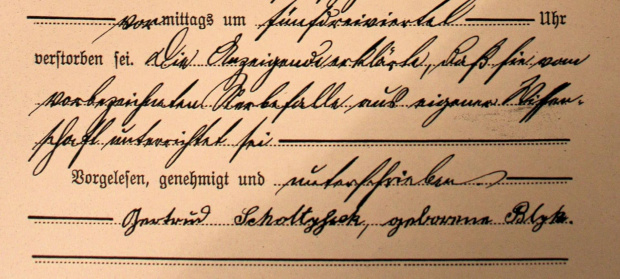 vormittags um fünfdreiviertel Uhr
verstorben sei. Die Anzeigende erklärte, daß sie vom
vorbezeichneten Sterbefalle aus eigener Wissen-
schaft unterrichtet sei
Vorgelesen, genehmigt und unterschrieben
Gertrud Scholtyseck, geborene